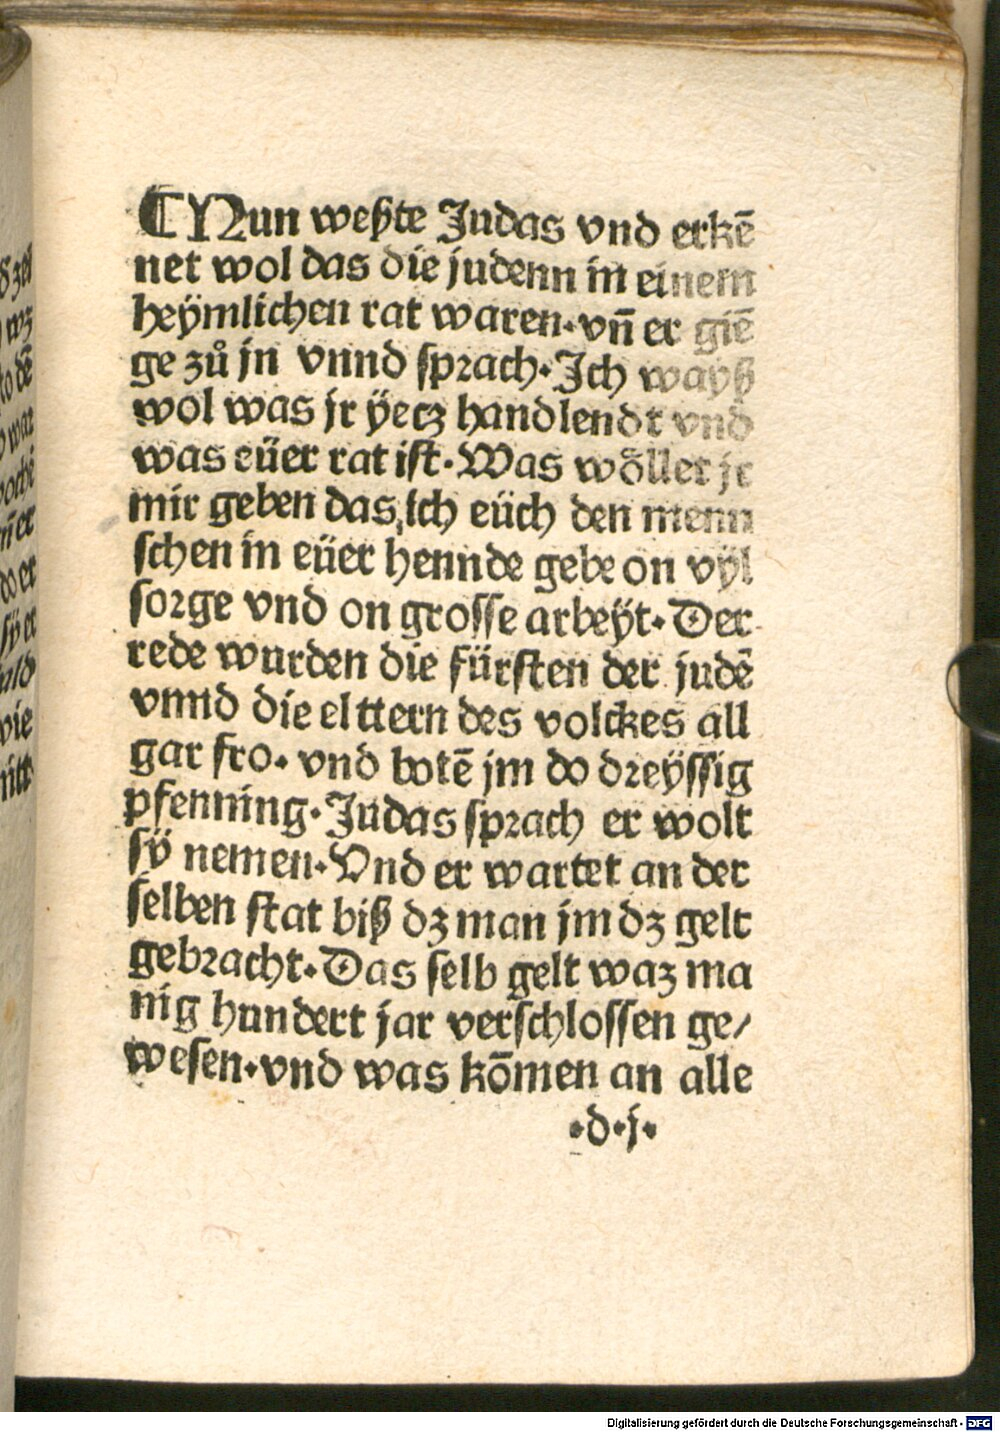 ¶ Nun weßte Judas vnd erkē
net wol das die judenn in einem
heÿmlichen rat waren·vn̄ er giē
ge zů jn vnnd sprach·Ich wayß
wol was jr ÿecz handlendt vnd
was eüer rat ist·Was wöllet jr
mir geben das ich eüch den menn
schen in eüer hennde gebe on vÿl
sorge vnd on grosse arbeÿt·Der
rede wurden die fürsten der judē
vnnd die elttern des volckes all
gar fro· vnd botē jm do dreÿssig
pfenning·Judas sprach er wolt
sÿ nemen·Vnd er wartet an der
selben stat biß dz man jm dz gelt
gebracht·Das selb gelt waz ma
nig hundert jar verschlossen ge/
wesen·vnd was kōmen an alle
·d·j·
Digitalisierung gefördert durch die Deutsche Forschungsgemeinschaft - DFG